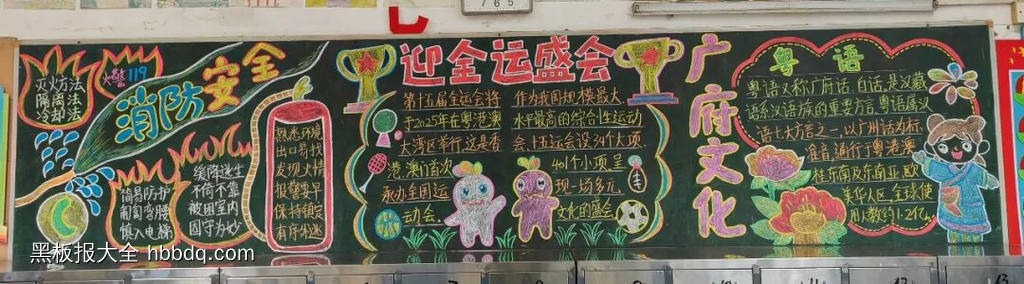 765
灭火方法
隔离法
冷却法
火警119
消防安全
简易防护
匍匐弯腰
慎入电梯
缓降逃生
不等不靠
被困室内
固守为妙
熟悉环境
出口易找
发现火情
报警要早
保持镇定
有序外逃
迎全运盛会
第十五届全运会将
于2025年在粤港澳
大湾区举行,这是香
港,澳门首次
承办全国运
动会。
作为我国规模最大
水平最高的综合性运动
会,十五运会设34个大项
401个小项呈
现一场多元
文化的盛会
广府文化
粤语
粤语又称广府话,白话,是汉藏
语系汉语族的重要方言,粤语属汉
语七大方言之一,以广州话为标
准音,通行于粤港澳
桂东南及东南亚,欧
美华人区,全球使
用人数约1.2亿
黑板报大全 hbbdq.com
13